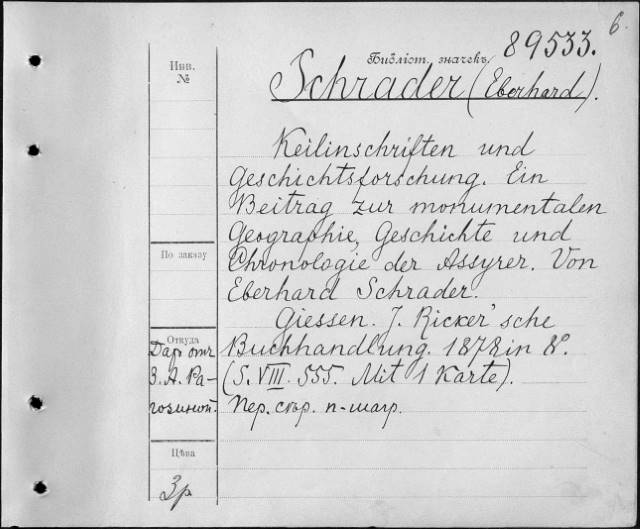 6.
Библіот. значекъ 89533.
Инв.
№
Schrader (Eberhard).
Keilinschriften und
Geschichtsforschung. Ein
Beitrag zur monumentalen
Geographie, Geschichte und
Chronologie der Assyrer. Von
По заказу
Eberhard Schrader.
Giessen. J. Ricker'sche
Откуда
Даръ отъ Buchhandlung. 1878 in 8°.
З. А. Ра- (S. VIII. 555. Mit 1 Karte).
гозиной. Пер. п-шагр.
Цѣна
3р